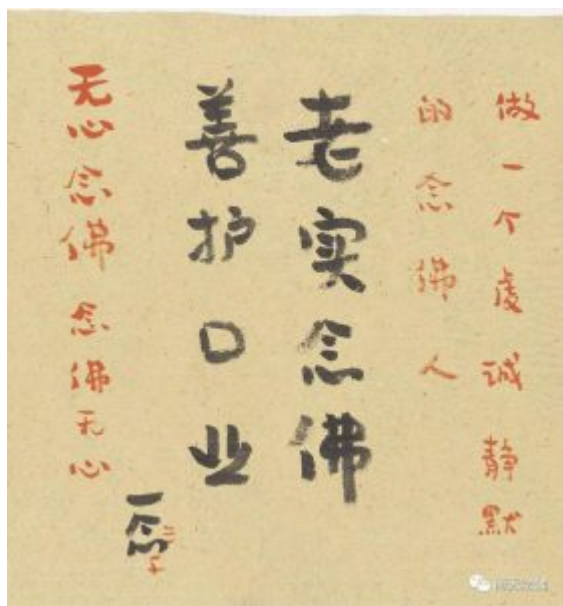 做一个虔诚静默
的念佛人
老实念佛
善护口业
无心念佛 念佛无心
一念
二〇